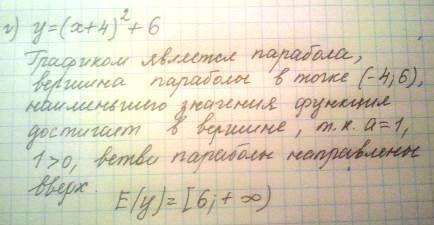 г) y=(x+4)²+6
Графиком является парабола,
вершина параболы в точке (-4;6),
наименьшего значения функция
достигает в вершине, т.к. a=1,
1>0, ветви параболы направлены
вверх.
E(y)=[6;+∞)